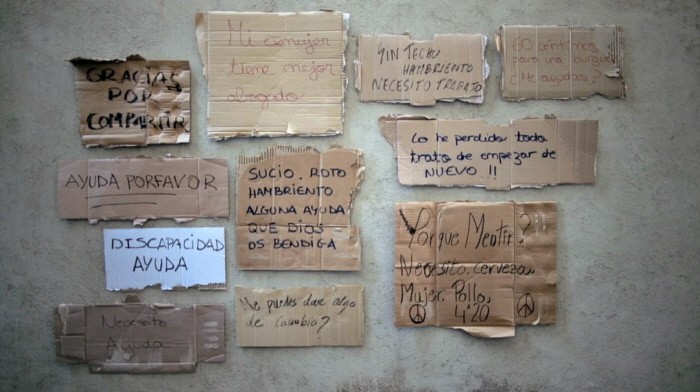 GRACIAS
POR
COMPARTIR
Mi exmujer
tiene mejor
abogado
SIN TECHO
HAMBRIENTO
NECESITO TRABAJO
60 céntimos
para una burguer
¿Me ayudas?
AYUDA PORFAVOR
SUCIO. ROTO
HAMBRIENTO
ALGUNA AYUDA
QUE DIOS
OS BENDIGA
Lo he perdido todo
trato de empezar de
NUEVO !!
DISCAPACIDAD
AYUDA
Porque Mentir?
Necesito, cerveza,
Mujer, Pollo,
4:20
Necesito
Ayuda
Me puedes dar algo
de cambio?